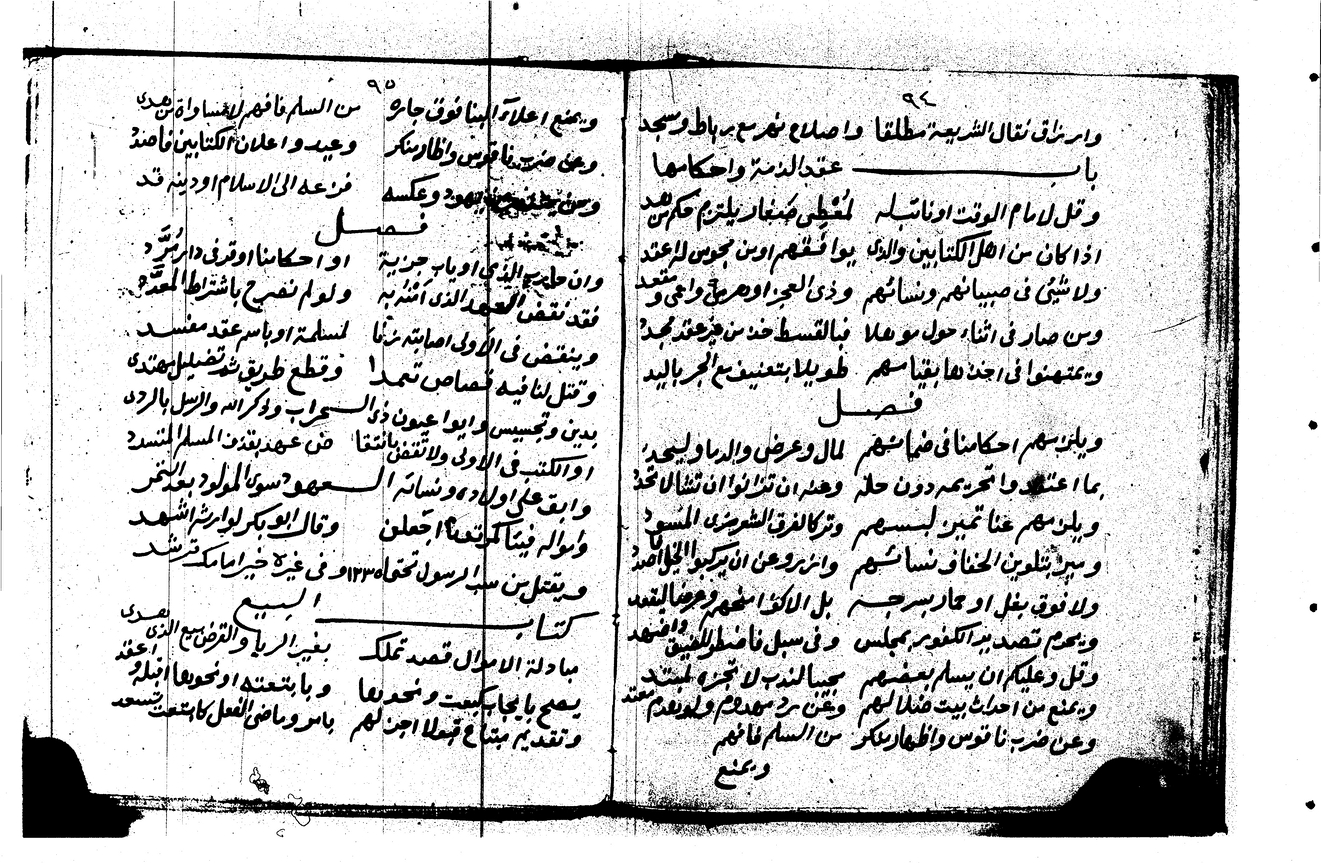 ٩٤
وارزاق نقال الشريعة مطلقا واصلاح نهر مع رباط ومسجد
باب عقد الذمة واحكامها
وقل لامام الوقت او نائب له لمعطى صغار يلتزم حكم من هدى
اذا كان من اهل الكتابين والذى يوافقهم او من مجوس له اعتد
ولا شئ فى صبيانهم ونسائهم وذى العجز او هرم واعمى ومقعد
ومن صار فى اثناء حول مؤهلا فبالقسط خذ من غير عقد مجدد
ويمتهنوا فى اخذها بقيامهم طويلا بتعنيف مع الجر باليد
فصل
ويلزمهم احكامنا فى ضمانهم لمال وعرض والدما وليحدا
بما اعتقدوا تحريمه دون حله وعنه ان تزانوا ان تشا لا تحد
ويلزمهم عنا تميز لبسهم وترك لفرق الشعر
بتلوين الخفاف نسائهم وازر وعن ان يركبوا الخيل فاصدد
ولا فوق بغل او حمار بسرجه بل الاكف امنحهم وعرضا ليقعد
ويحرم تصدير الكفور بمجلس وفى سبل فاضطر للضيق واضهد
وقل وعليكم ان يسلم بعضهم مجيبا لندب لا تجزه لمبتد
ويمنع من احداث بيت ضلالهم وعن رد مهدوم ولو بعدم معتد
وعن ضرب ناقوس واظهار منكر من السلم فافهم
ويمنع
٩٥
ويمنع اعلاء البنا فوق جاره من السلم فافهم لا مساواة من هدى
وعن ضرب ناقوس واظهار منكر وعيد واعلان الكتابين فاصدد
ومن يهود وعكسه فزعه الى الاسلام او دينه قد
فصل
وان حارب الذمى او ياب جزية او احكامنا او قر فى دار مرد
فقد نقض العهد الذى ائتنه به ولو لم نصرح باشتراط المعدد
وينقض فى الاولى اصابته زنا لمسلمة او باسم عقد مفسد
وقتل لنا فيه قصاص تعمدا وقطع طريق ثم تضليل مهتدى
بدين وتجسيس وايوا عيون ذى الحراب وذكر الله والرسل بالردى
او الكتب فى الاولى ولا تنقض بانتقا ض عهد بقذف المسلم المتسدد
وابق على اولاده ونسائه العهود سوى المولود بعد
وامواله فيئا اجعلن وقال ابو بكر لوارثه اشهد
ويقتل من سب الرسول وفى غيره خير امامك ترشد
كتاب البيع
مبادلة الاموال قصد تملك بغير الربا والقرض بيع الذى هدى
يصح بايجاب كبعت ونحوها وبابتعته او نحوها اقبله واعقد
وتقديم مبتاع قبولا اجز لهم بامر وماضى الفعل كابتعت تسعد